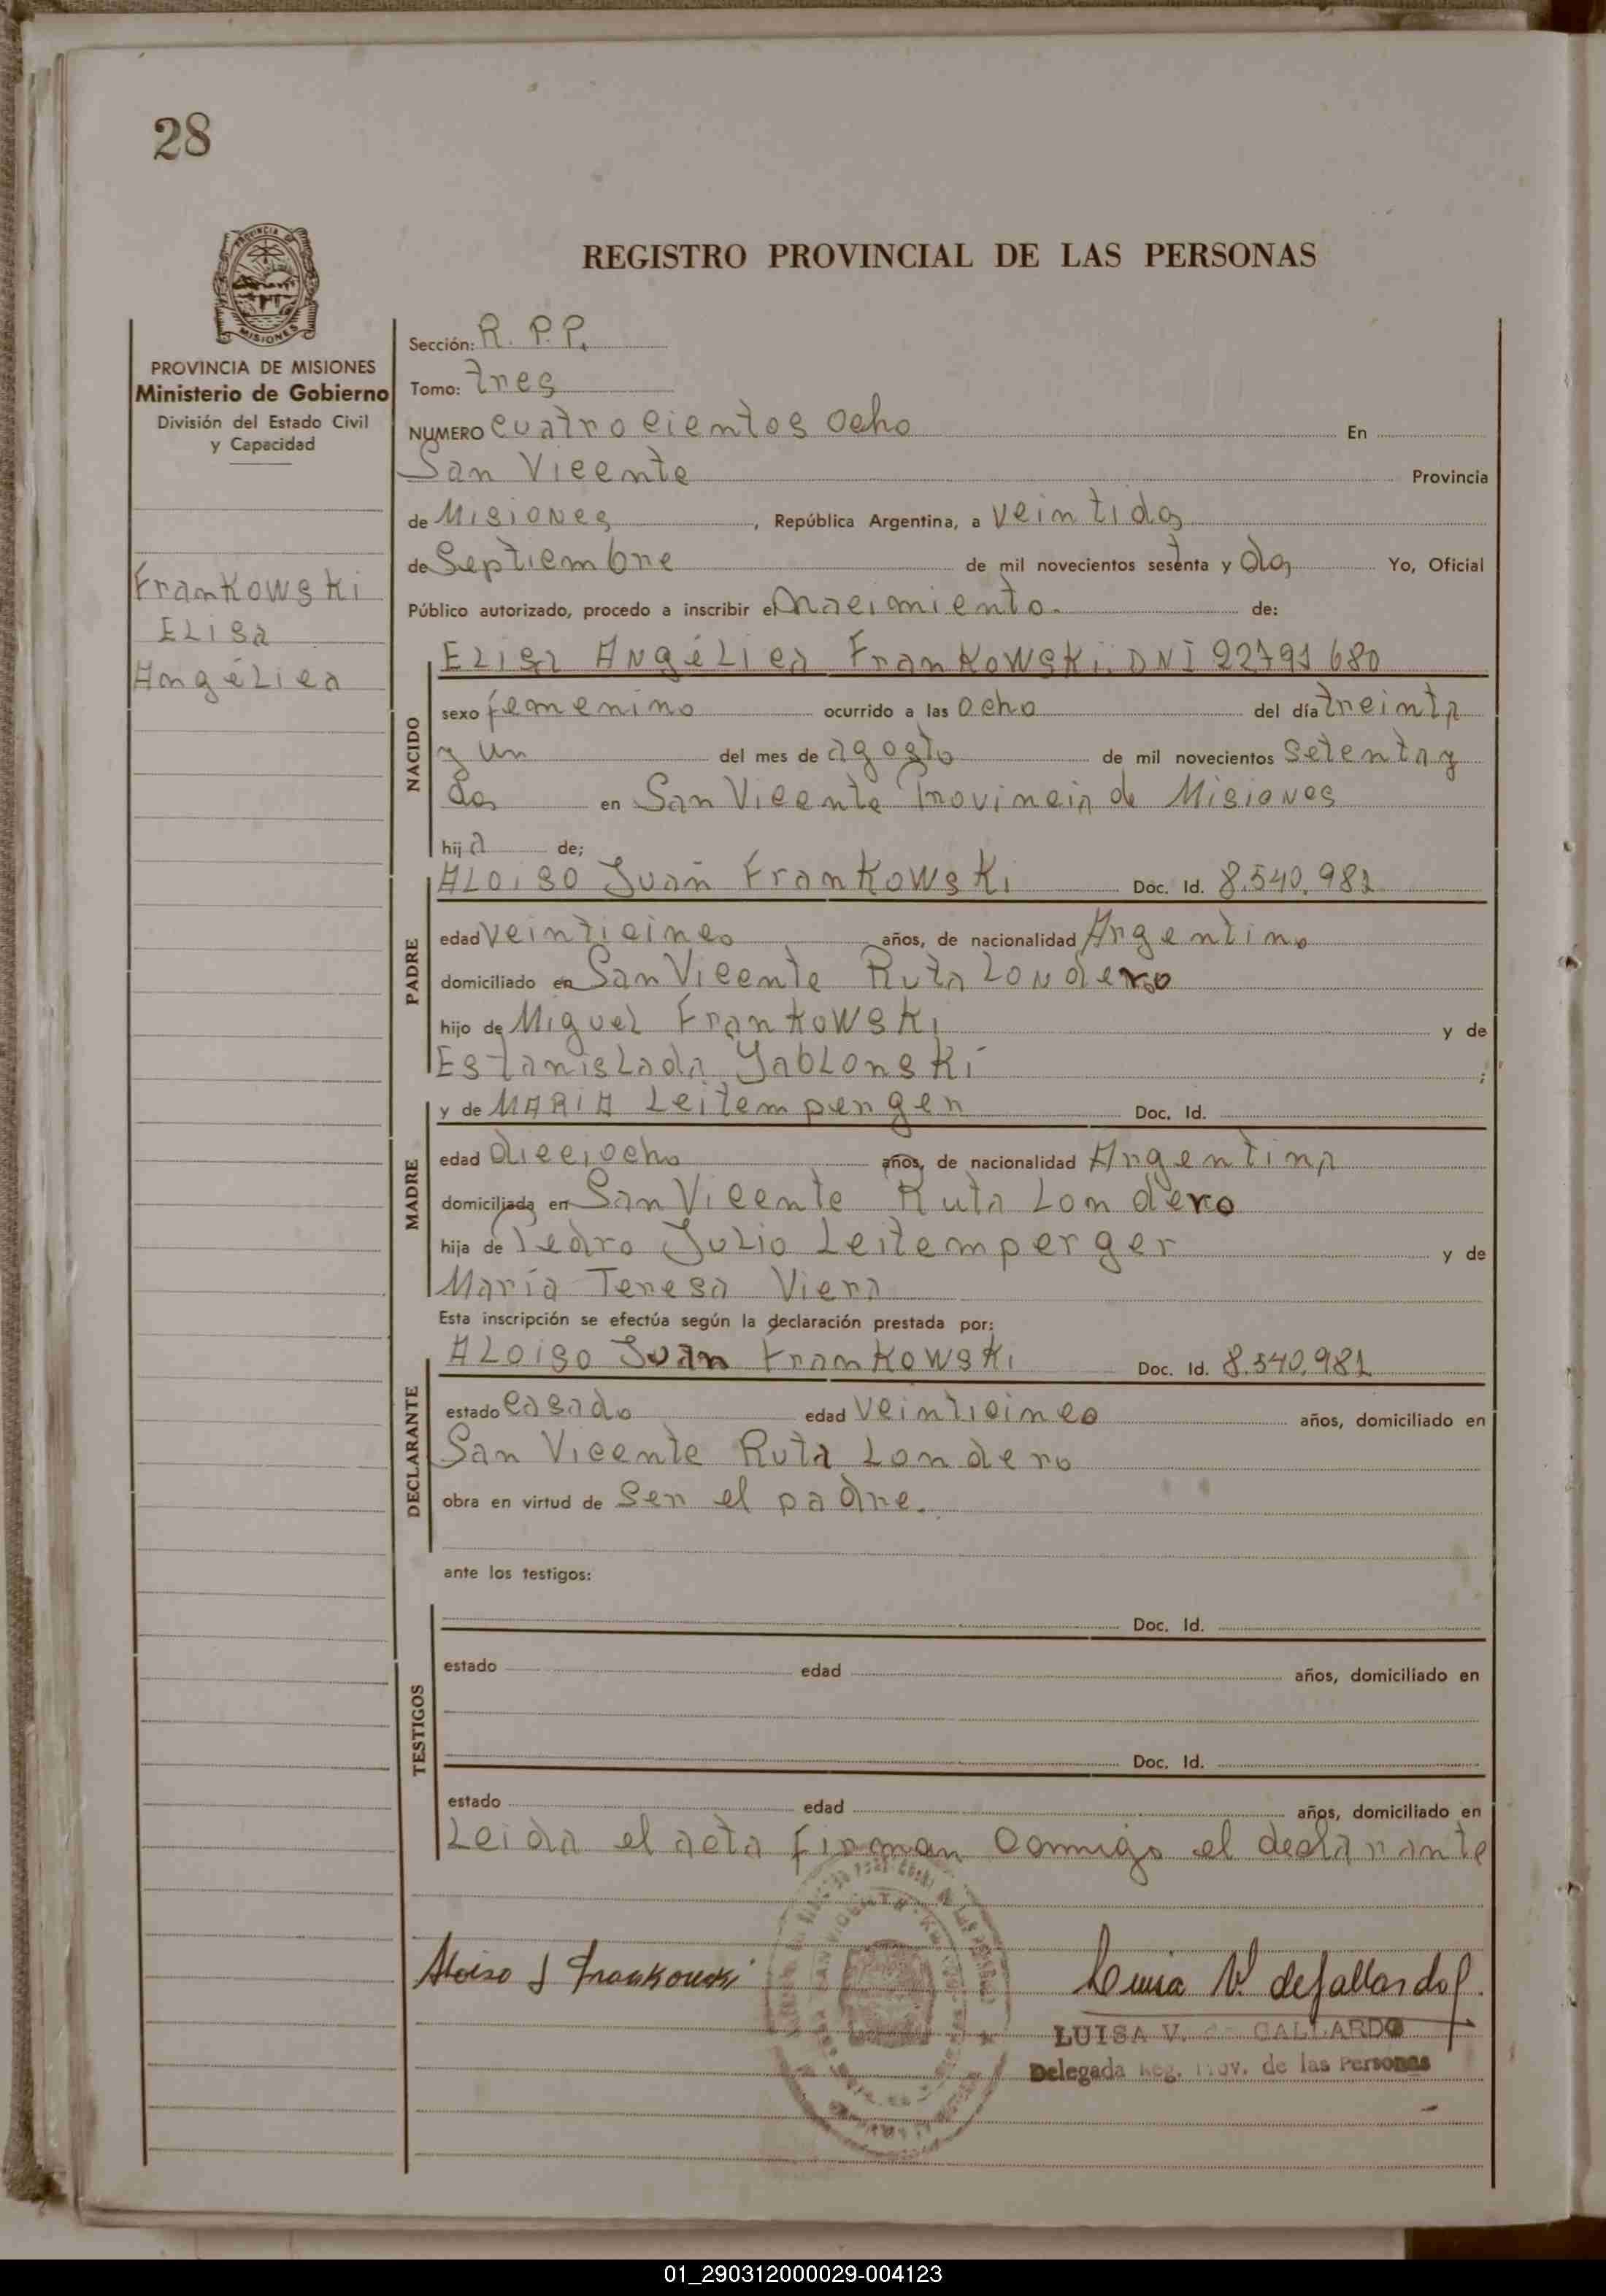 28
REGISTRO PROVINCIAL DE LAS PERSONAS
PROVINCIA DE MISIONES
Ministerio de Gobierno
División del Estado Civil
y Capacidad
Frankowski
Elisa
Angélica
Sección: R. P.P.
Tomo: tres
NUMERO cuatrocientos ocho En
San Vicente Provincia
de Misiones, República Argentina, a veintidos
de Septiembre de mil novecientos setenta y dos Yo, Oficial
Público autorizado, procedo a inscribir el nacimiento. de:
NACIDO
Elisa Angélica Frankowski DNI 22791680
sexo femenino ocurrido a las ocho del día treinta
y un del mes de agosto de mil novecientos setenta y
dos en San Vicente Provincia de Misiones
hija de;
PADRE
Aloiso Juan Frankowski Doc. Id. 8.540.982
edad veinticinco años, de nacionalidad Argentino
domiciliado en San Vicente Ruta Londero
hijo de Miguel Frankowski y de
Estanislada Yablonski ;
MADRE
y de MARIA Leitemperger Doc. Id.
edad dieciocho años, de nacionalidad Argentina
domiciliada en San Vicente Ruta Londero
hija de Pedro Julio Leitemperger y de
María Teresa Viera
Esta inscripción se efectúa según la declaración prestada por:
DECLARANTE
Aloiso Juan Frankowski Doc. Id. 8.540.982
estado casado edad veinticinco años, domiciliado en
San Vicente Ruta Londero
obra en virtud de ser el padre.
ante los testigos:
TESTIGOS
Doc. Id.
estado edad años, domiciliado en
Doc. Id.
estado edad años, domiciliado en
Leida el acta firman conmigo el declarante
Aloiso J Frankowski
Luisa V. de Gallardo
LUISA V. de GALLARDO
Delegada Reg. Prov. de las Personas
01_290312000029-004123